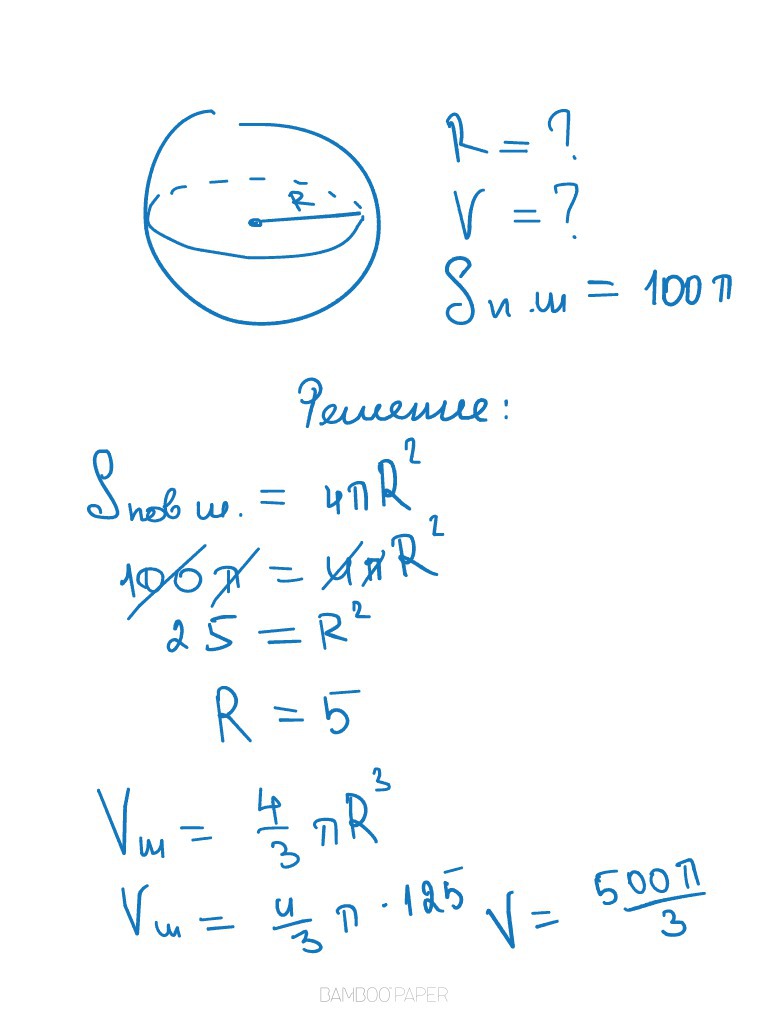 R
R = ?
V = ?
Sп.ш = 100π
Решение:
Sпов ш. = 4πR²
100π = 4πR²
25 = R²
R = 5
Vш = 4/3 πR³
Vш = 4/3 π · 125 V = 500π/3
BAMBOO PAPER